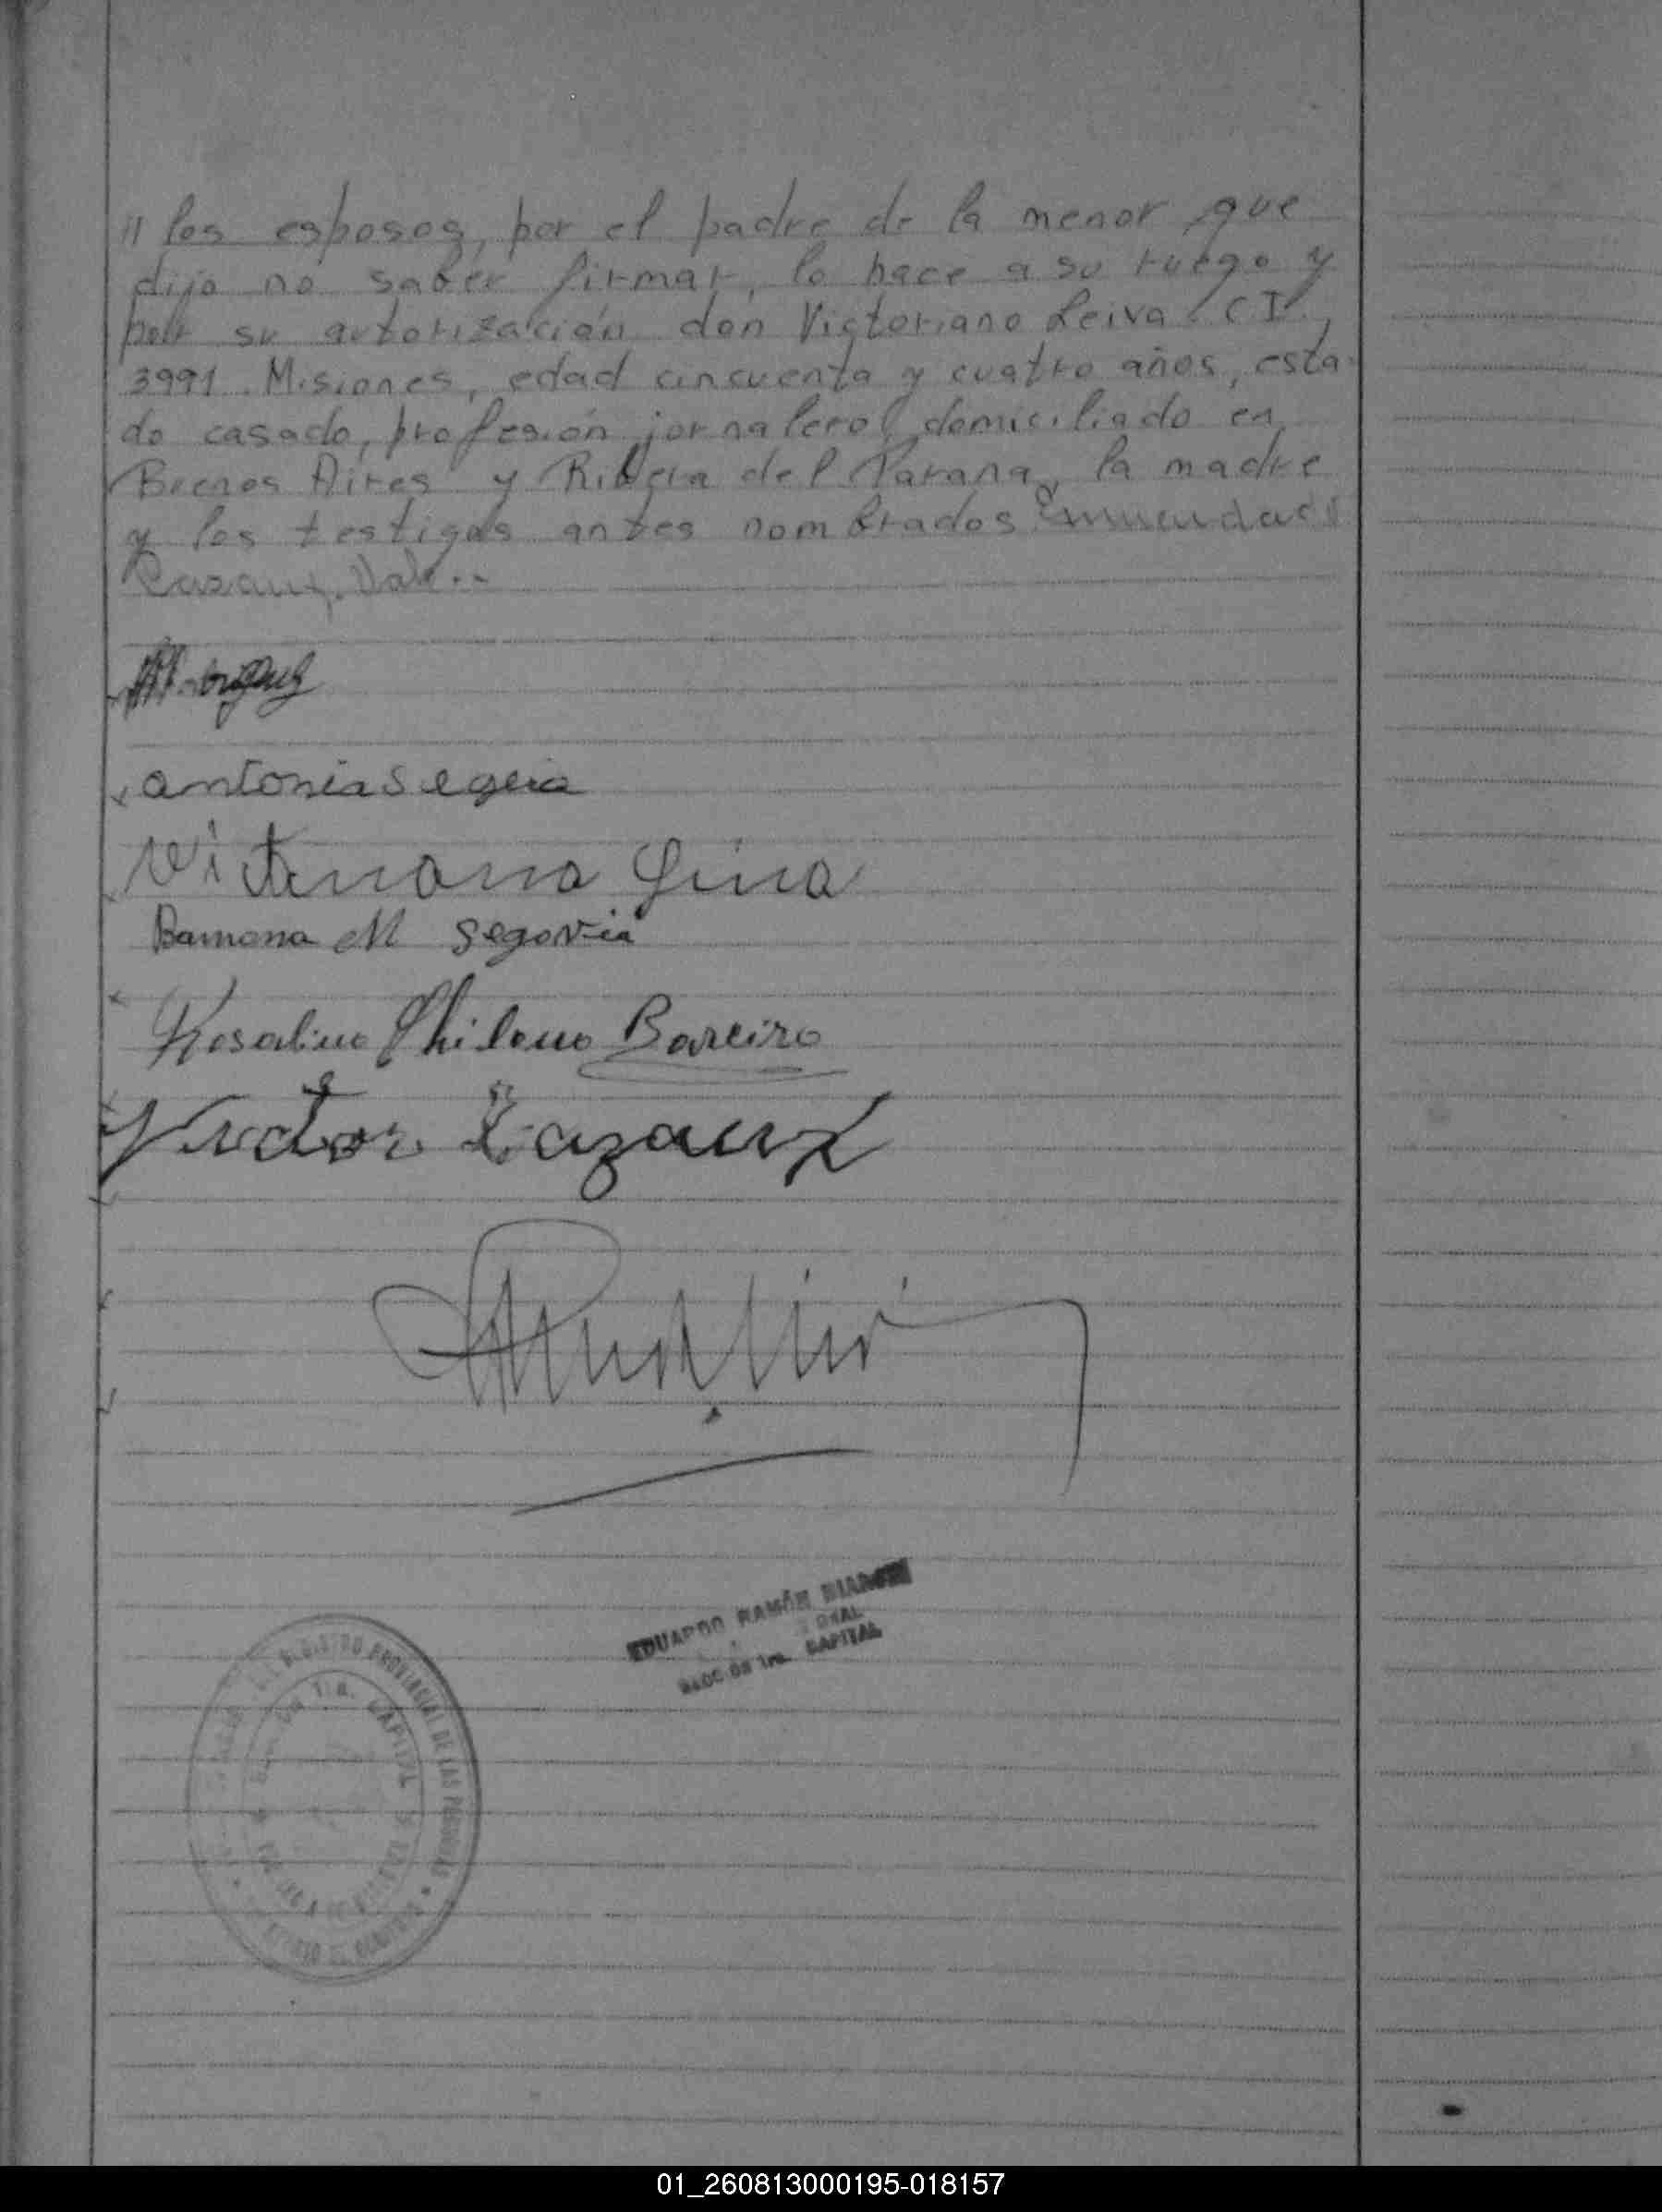 // los esposos, por el padre de la menor que
dijo no saber firmar, lo hace a su ruego y
por su autorización don Victoriano Leiva CI.,
3991. Misiones, edad cincuenta y cuatro años, esta-
do casado, profesión jornalero, domiciliado en
Buenos Aires y Ribera del Parana, la madre
y los testigos antes nombrados. Enmendado:
Cazaux. Vale.-
antonia
Ramona M Segovia
Rosalino Chileno Bareiro
Victor Cazaux
EDUARDO RAMÓN
CAPITAL
REGISTRO PROVINCIAL DE LAS PERSONAS
1ra. CAPITAL
01_260813000195-018157